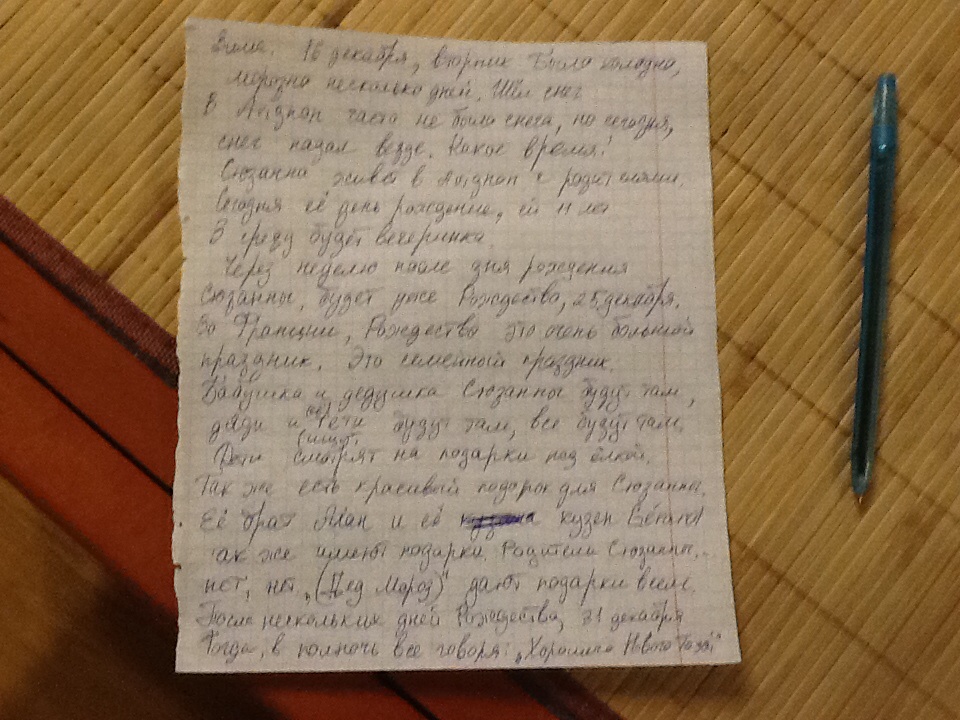 Зима. 16 декабря, вторник Было холодно,
морозно несколько дней. Шёл снег
В Avignon часто не было снега, но сегодня,
снег падал везде. Какое время!
Сюзанна живёт в Avignon с родителями.
Сегодня её день рождение, ей 11 лет
В среду будет вечеринка.
Через неделю после дня рождения
Сюзанны, будет уже Рождество, 25 декабря.
Во Франции, Рождество это очень большой
праздник. Это семейный праздник.
Бабушка и дедушка Сюзанны будут там,
дяди и тёти будут там, все будут там.
Дети смотрят на подарки под ёлкой.
Так же есть красивый подарок для Сюзанны.
Её брат Alan и её кузен Gérard
так же имеют подарки. Родители Сюзанны...
нет, нет, „(Дед Мороз)" дают подарки всем.
После нескольких дней Рождества, 31 декабря
Тогда, в полночь все говоря: „Хорошего Нового Года!"